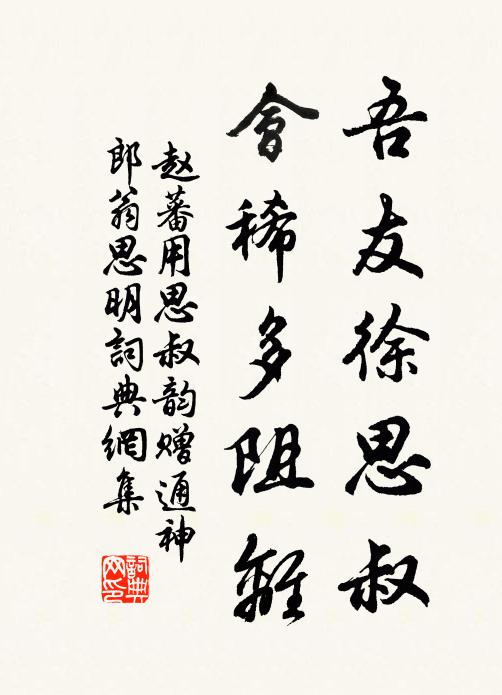 吾友徐思叔
會稀多阻離
赵蕃用思叔韵赠通神
郎翁思明詞典網集
詞典网印